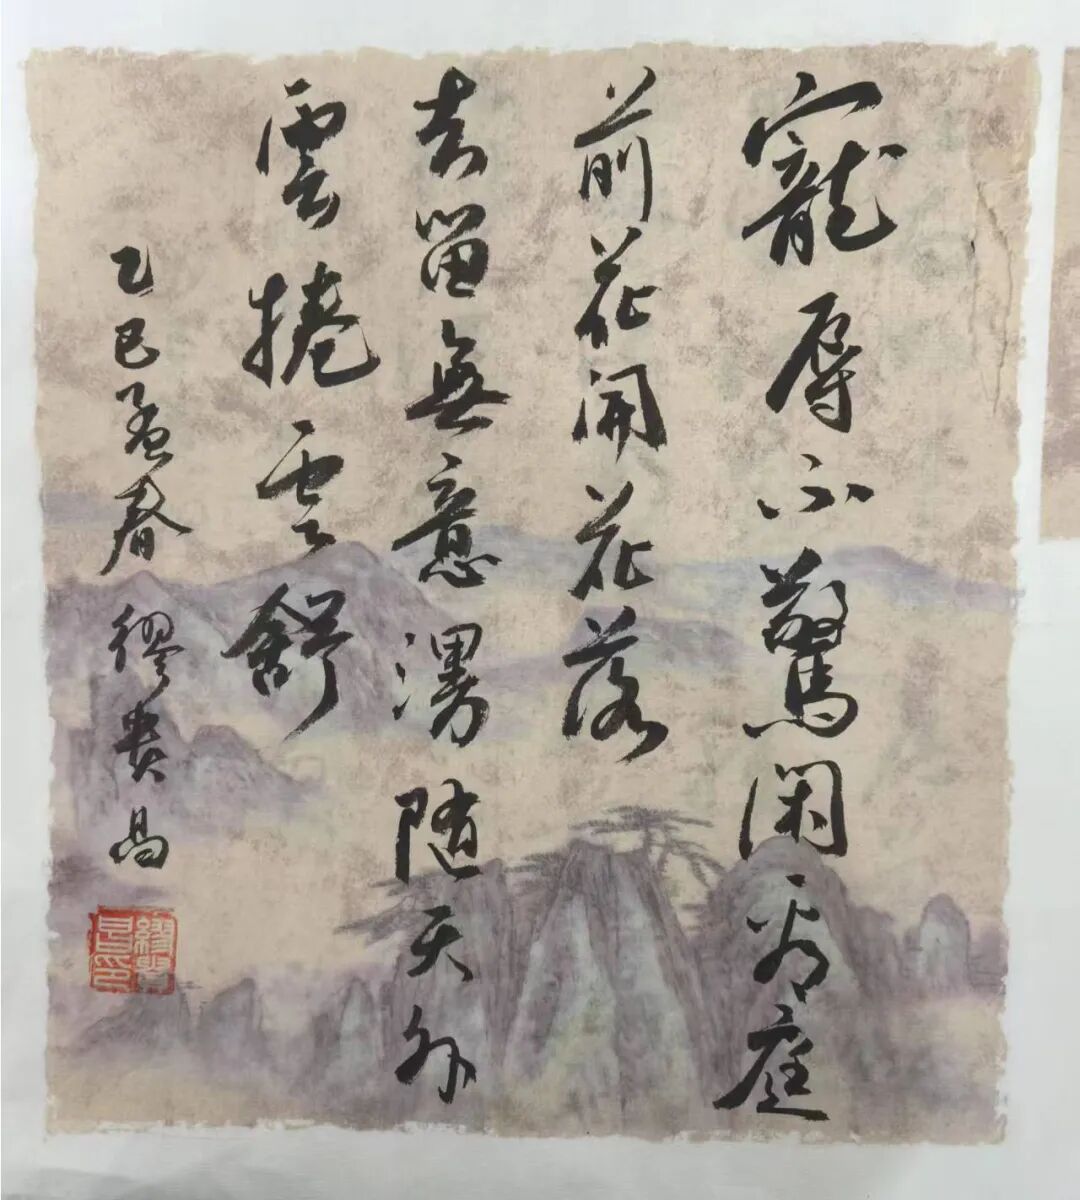 寵辱不驚閑看庭
前花開花落
去留無意漫隨天外
雲捲雲舒
乙巳孟春 繆貴昌
繆貴昌印